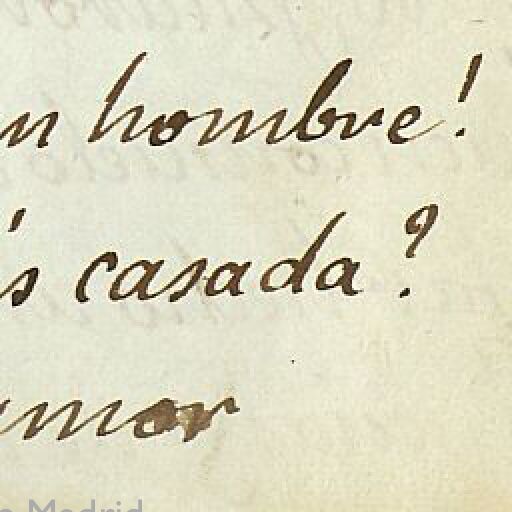 n hombre!
ás casada?
amor
Madrid